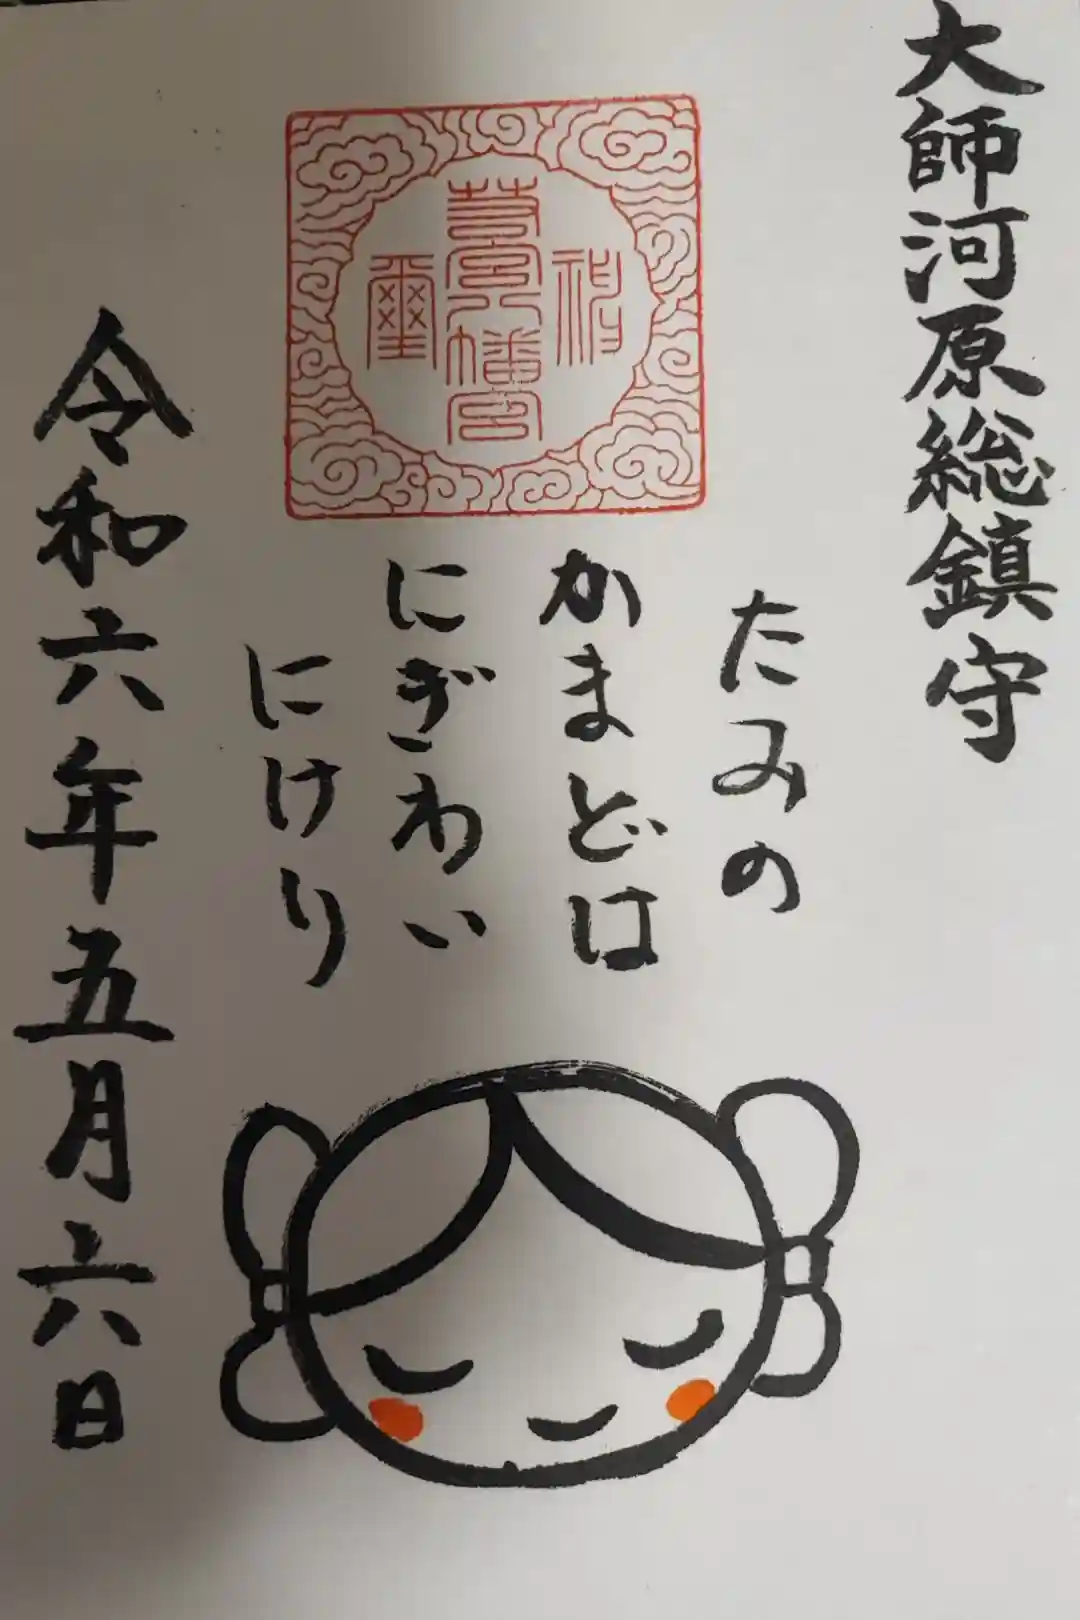 大師河原総鎮守
若宮八幡宮
璽
たみの
かまどは
にぎわい
にけり
令和六年五月六日